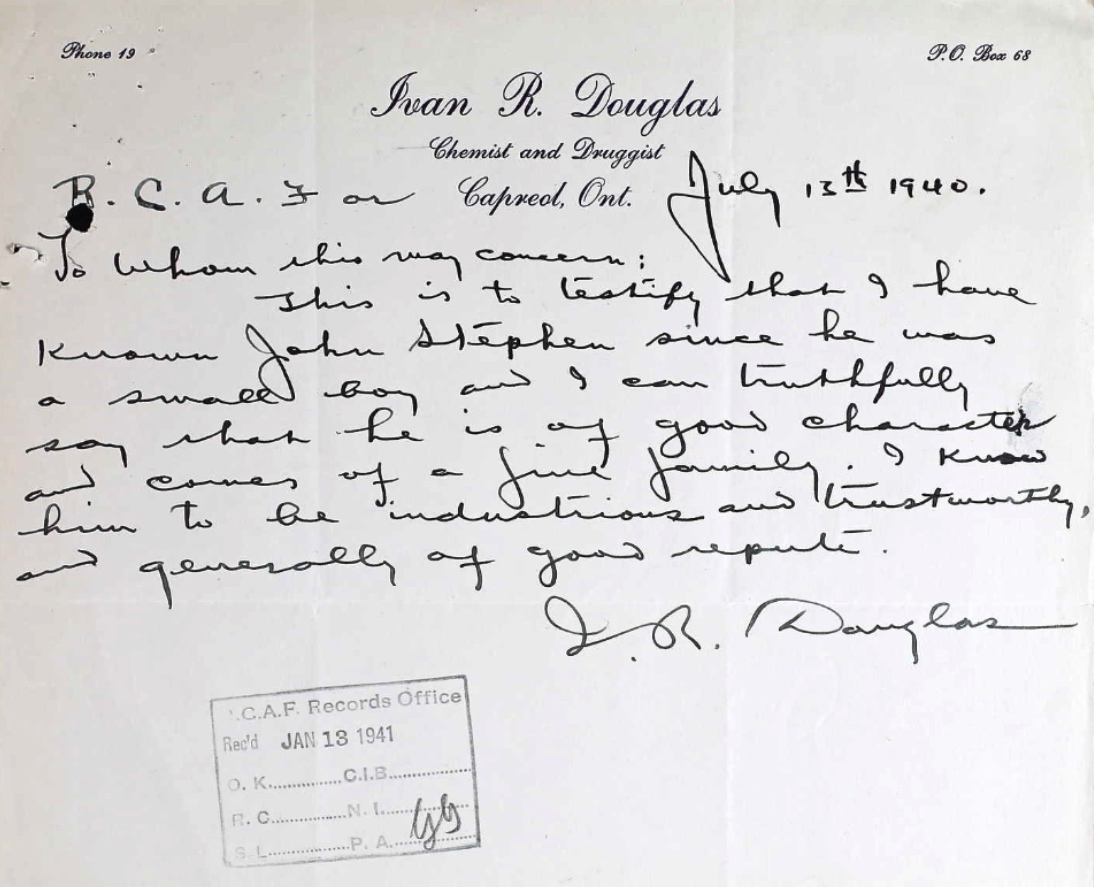 Phone 19
P.O. Box 68
Ivan R. Douglas
Chemist and Druggist
Capreol, Ont.
July 13th 1940.
R. C. A. F or
To Whom this may concern:
This is to testify that I have
Known John Stephen since he was
a small boy and I can truthfully
say that he is of good character
and comes of a fine family. I know
him to be industrious and trustworthy,
and generally of good repute.
I. R. Douglas
.C.A.F. Records Office
Rec'd JAN 13 1941
O. K. C.I.B.
R. C. N. I.
S L. P. A.